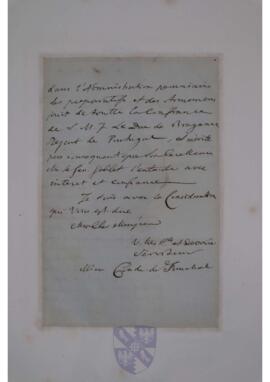 dans l'Administration pecuniaire
des preparatifs et des Armemens
jouit de toutte la Confiance
de S. M. I. Le Duc de Bragance
Regent de Portugal, et merite
par consequent que Son Excellence
le Gen. l'entende avec
interet et confiance
Je suis avec la Consideration
qui Vous est due
Monsieur
V. tres H. et Devoué
Serviteur
Comte de Funchal